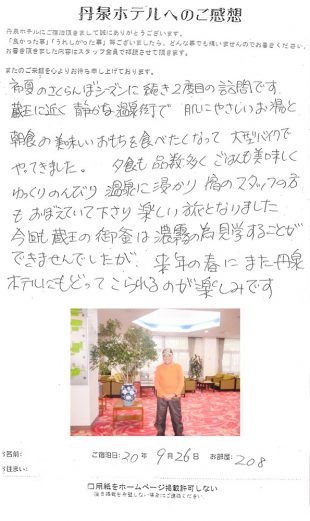 丹泉ホテルへのご感想
丹泉ホテルにご宿泊頂きまして誠にありがとうございます。
「良かった事」「うれしかった事」等ございましたら、どんな事でも構いませんのでお書きください。
お書き頂きました内容はスタッフ全員で拝読させて頂きます。
またのご来館を心よりお待ち申し上げております。
初夏のさくらんぼシーズンに続き2度目の訪問です。
蔵王に近く静かな温泉街で 肌にやさしいお湯と
朝食の美味しいおもちを食べたくなって 大型バイクで
やってきました。 夕食も品数多くごはんも美味しく
ゆっくりのんびり 温泉に浸かり 宿のスタッフの方
もおぼえていて下さり 楽しい旅となりました
今回も蔵王の御釜は濃霧の為見学することが
できませんでしたが、来年の春にまた丹泉
ホテルにもどってこられるのが楽しみです
お名前: ご宿泊日:20年 9月26日 お部屋: 208
お住まい:
□用紙をホームページ掲載許可しない